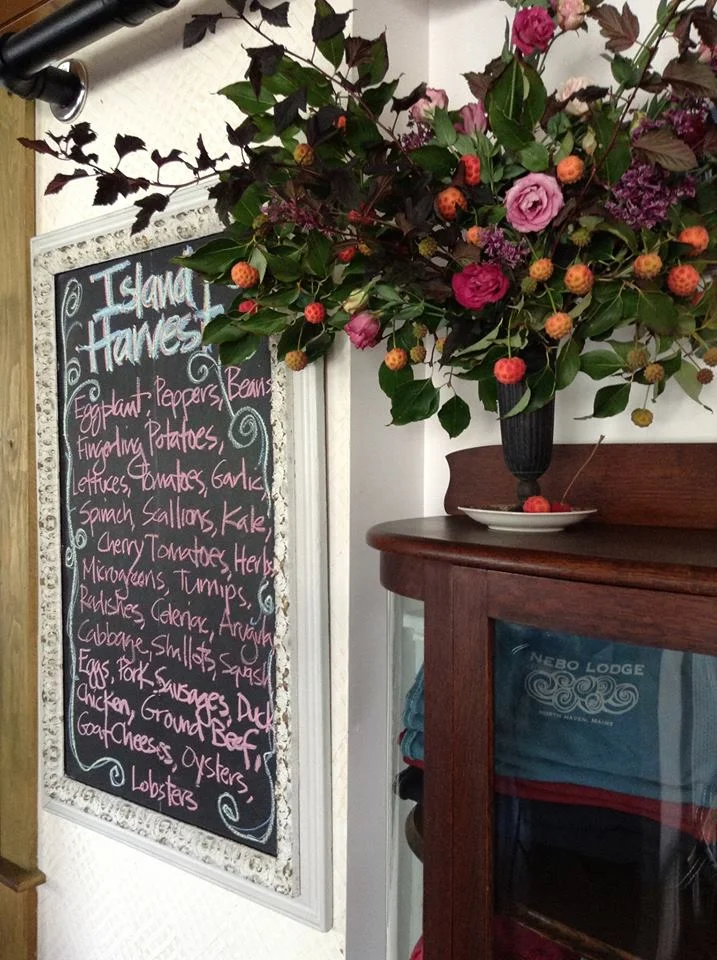 Island
Harvest
Eggplant, Peppers, Beans
Fingerling Potatoes,
Lettuces, Tomatoes, Garlic,
Spinach, Scallions, Kale,
Cherry Tomatoes, Herbs
Microgreens, Turnips,
Radishes, Celeriac, Arugula
Cabbage, Shallots, Squash
Eggs, Pork, Sausages, Duck
Chicken, Ground Beef,
Goat Cheeses, Oysters,
Lobsters
NEBO LODGE
NORTH HAVEN, MAINE